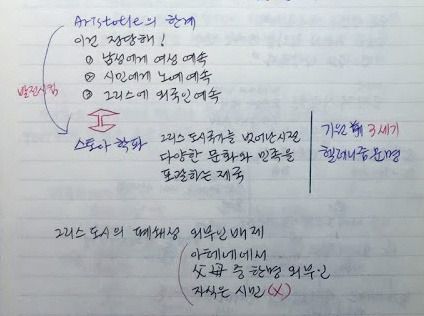 Aristotle의 한계
이건 정당해!
① 남성에게 여성 예속
② 시민에게 노예 예속
③ 그리스에 외국인 예속
발전시킴
스토아 학파
그리스 도시국가를 벗어난 시절
다양한 문화와 민족을
포괄하는 제국
기원 前 3세기
헬레니즘 문명
그리스 도시의 폐쇄성 외부인 배제
아테네에서
父母 중 한명 외부인
자식은 시민 (X)